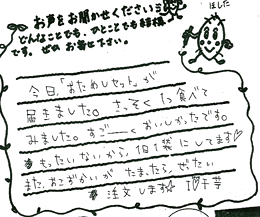 ほした
お声をお聞かせください
どんなことでも、ひとことでも結構
です。ぜひお寄せ下さい。
今日、「おためしセット」が
届きました。さっそく1つ食べて
みました。すご──くおいしかったです。
もったいないから、1日1袋にしてます♡
また、おこづかいが たまったら、ぜったい
注文します☆ I♡干芋